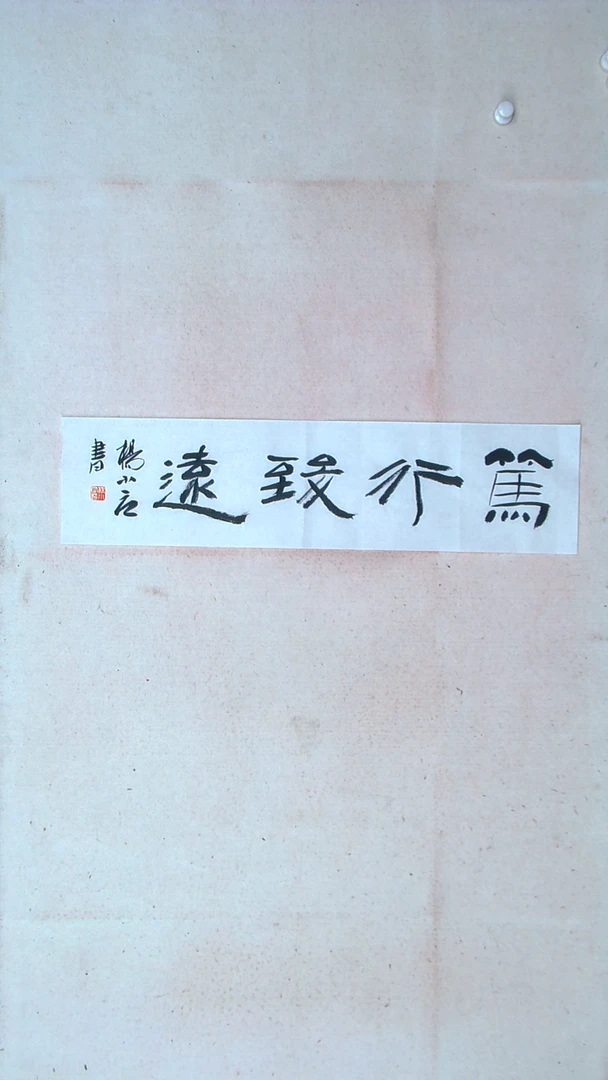 篤行致遠
楊小言
書